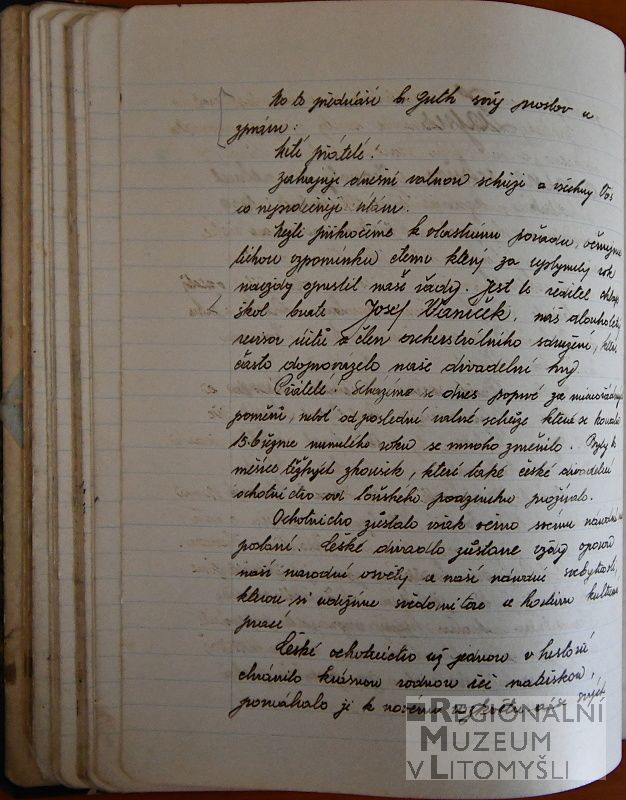 Na to přednáší br. Guth svůj proslov a
zprávu:
Milí přátelé!
Zahajuji dnešní valnou schůzi a všechny Vás
co nejsrdečněji vítám.
Nežli přikročíme k vlastnímu pořadu, věnujme
tichou vzpomínku členu který za uplynulý rok
navždy opustil naše řady. Jest to ředitel
škol bratr Josef Vaníček, náš dlouholetý
revisor účtů a člen orchestrálního sdružení, které
často doprovázelo naše divadelní hry.
Přátelé! Scházíme se dnes poprvé za mimořádných
poměrů, neboť od poslední valné schůze která se konala
15. března minulého roku se mnoho změnilo. Byly to
měsíce těžkých zkoušek, které také české divadelní
ochotnictvo od loňského podzimu prožívalo.
Ochotnictvo zůstalo však věrno svému národnímu
poslání. České divadlo zůstane vždy oporou
naší národní osvěty a naší národní svébytnosti,
kterou si udržíme svědomitou a horlivou kulturní
prací.
České ochotnictvo už jednou v historii
chránilo krásnou rodnou řeč mateřskou,
pomáhalo jí k novému rozkvětu
REGIONÁLNÍ
MUZEUM
V LITOMYŠLI